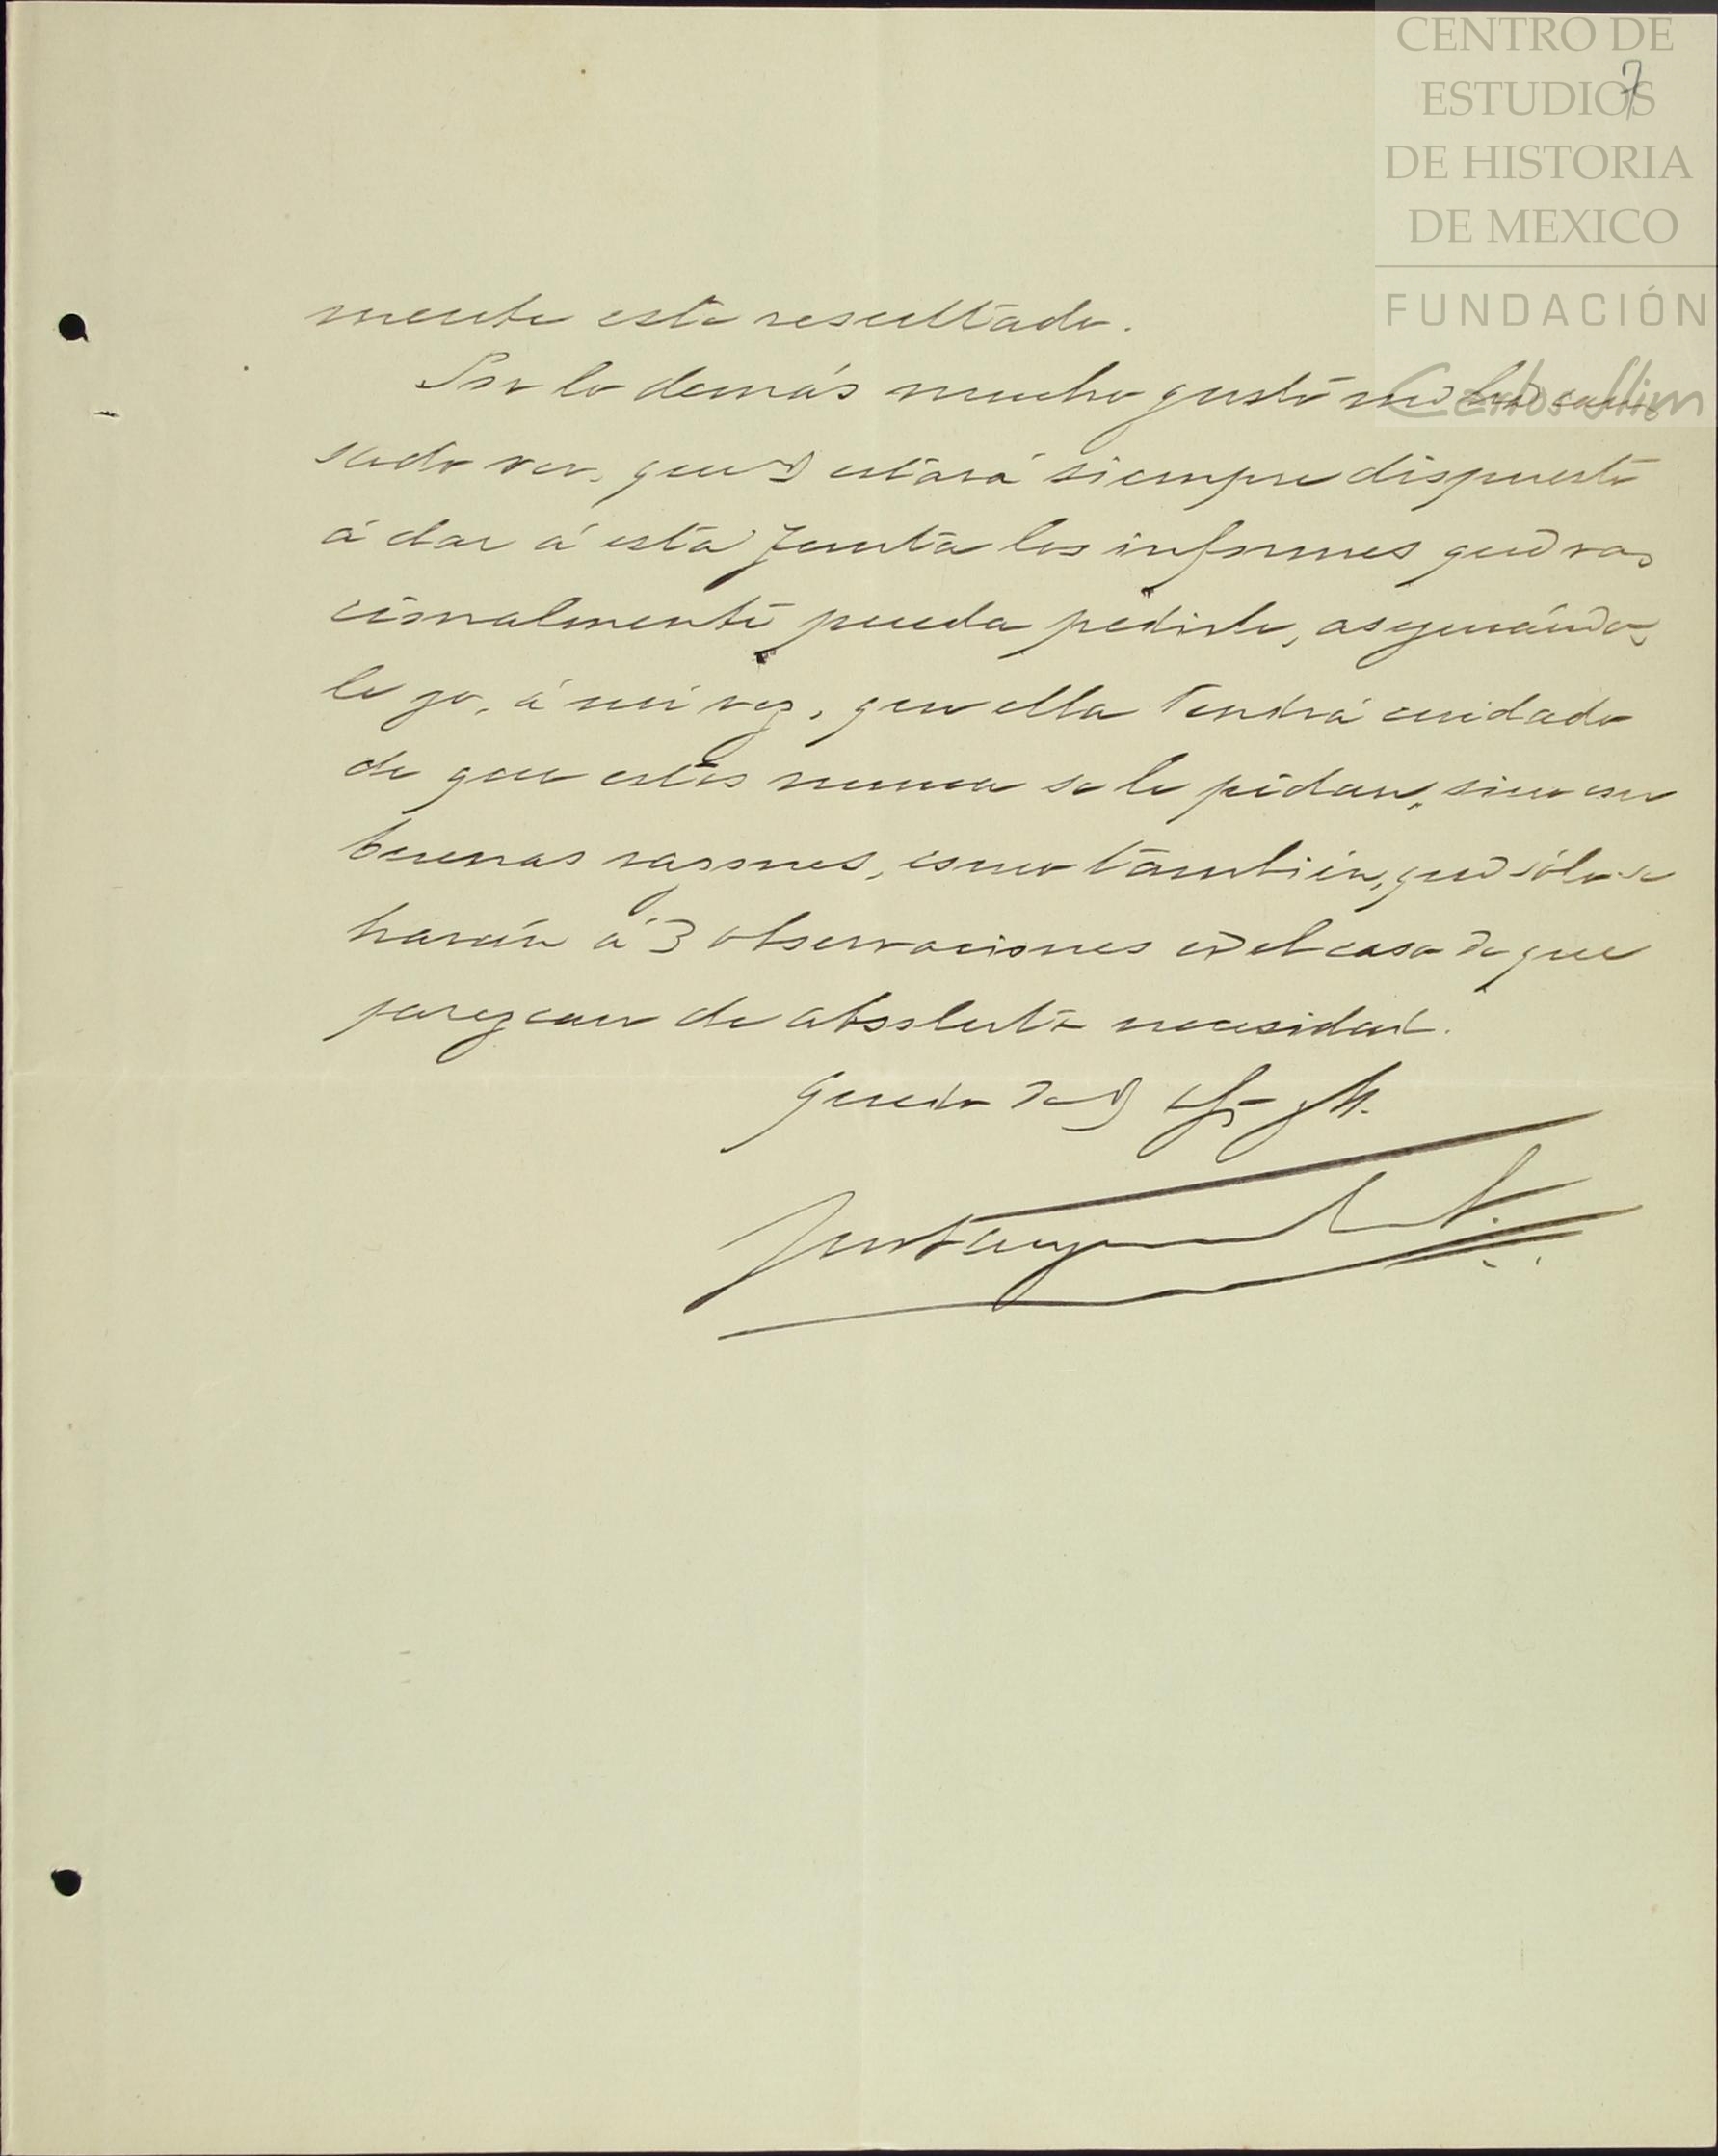 CENTRO DE
ESTUDIOS
DE HISTORIA
DE MEXICO
FUNDACIÓN
Carlos Slim
7
mente este resultado.
Por lo demás mucho gusto me ha cau
sado ver, que U estará siempre dispuesto
á dar á esta Junta los informes que ra
cionalmente pueda pedirle, asegurándo
le yo, á mi vez, que ella tendrá cuidado
de que estos nunca se le pidan, sino con
buenas razones, como también, que sólo se
harán á U observaciones en el caso de que
parezcan de absoluta necesidad.
Quedo de U